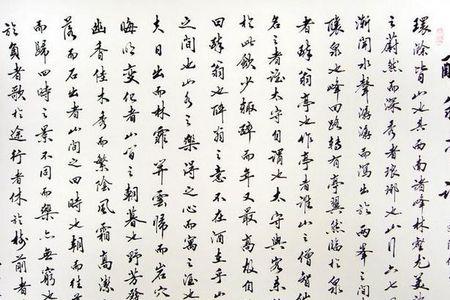 環滁皆山也其西南諸峰林壑尤美
之蔚然而深秀者琅琊也山行六七
漸聞水聲潺潺而瀉出於兩峯之間
釀泉也峰回路轉有亭翼然臨於泉
者醉翁亭也作亭者誰山之僧智仙
名之者誰太守自謂也太守與客來
於此飲少輒醉而年又最高故自
曰醉翁也醉翁之意不在酒在乎山
之間也山水之樂得之心而寓之酒也
夫日出而林霏開雲歸而岩穴
晦明變化者山間之朝暮也野芳發
幽香佳木秀而繁陰風霜高潔
落而石出者山間之四時也朝而往
而歸四時之景不同而樂亦無窮也
於負者歌於途行者休於樹前者